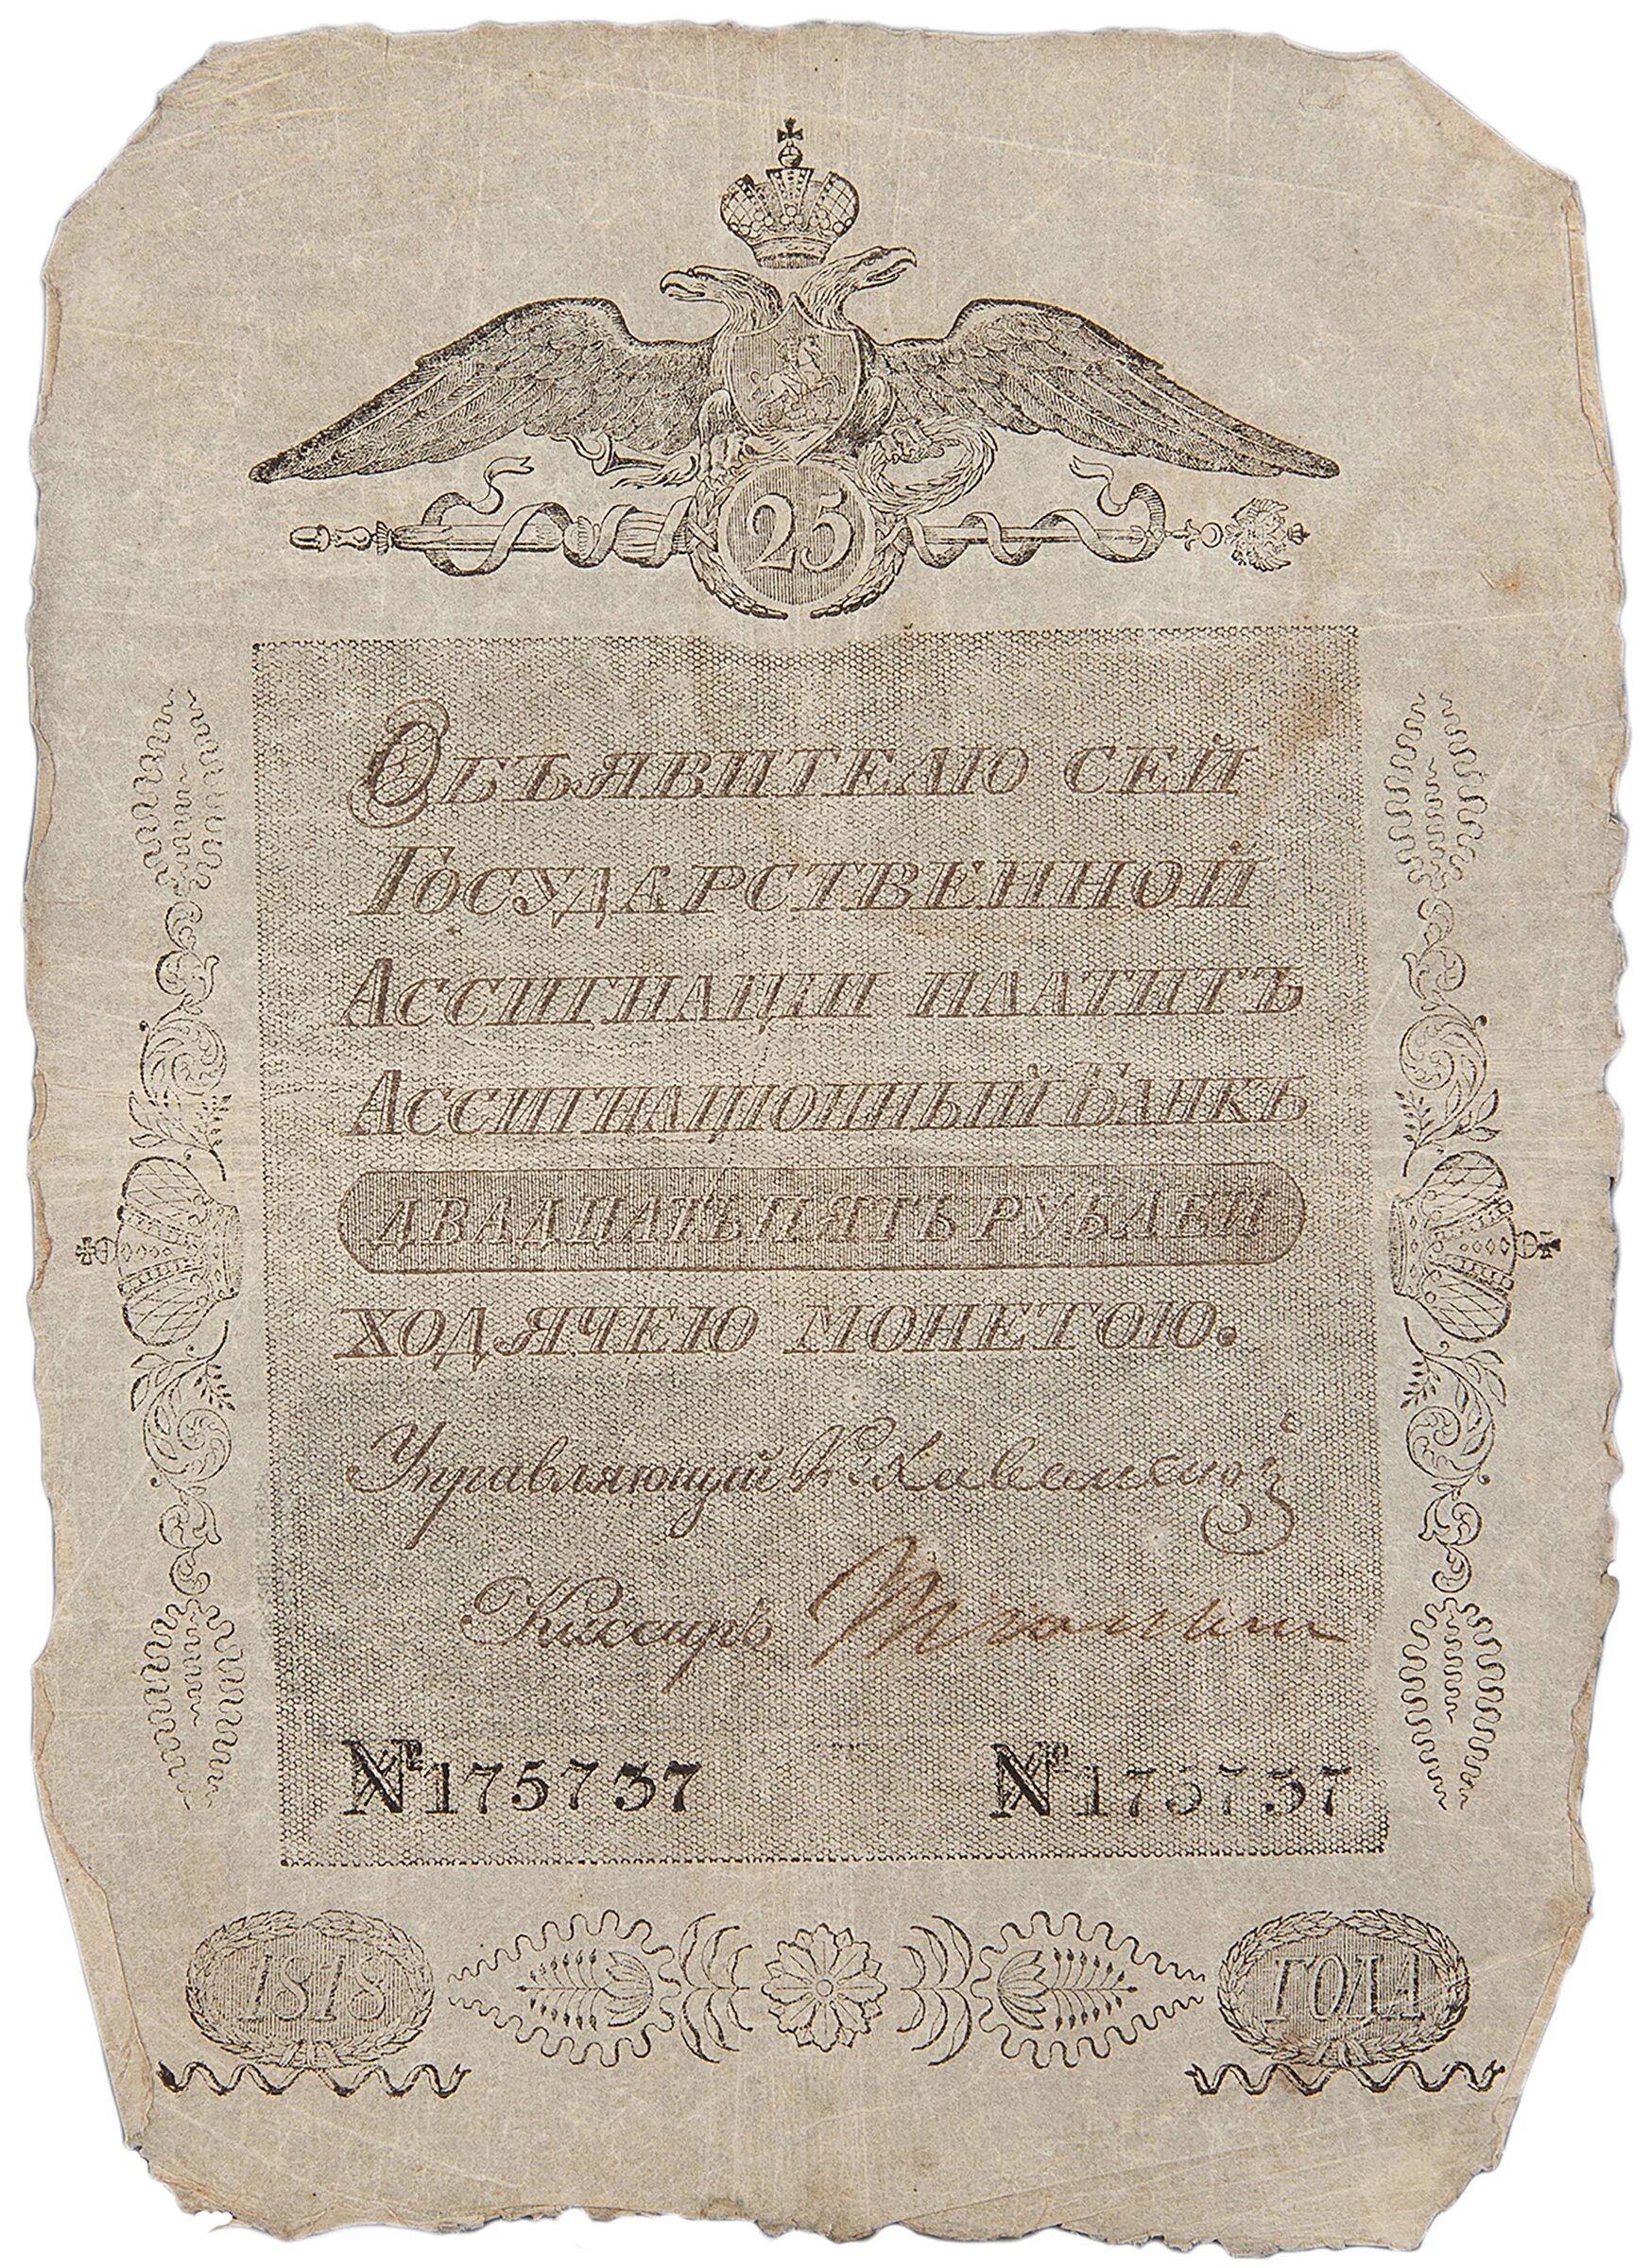 25
Объявителю сей
Государственной
Ассигнации платитъ
Ассигнаціонный Банкъ
двадцать пять рублей
ходячею монетою.
Управляющій К. Хованской
Кассиръ
№ 175737 № 175737
1818 ГОДА